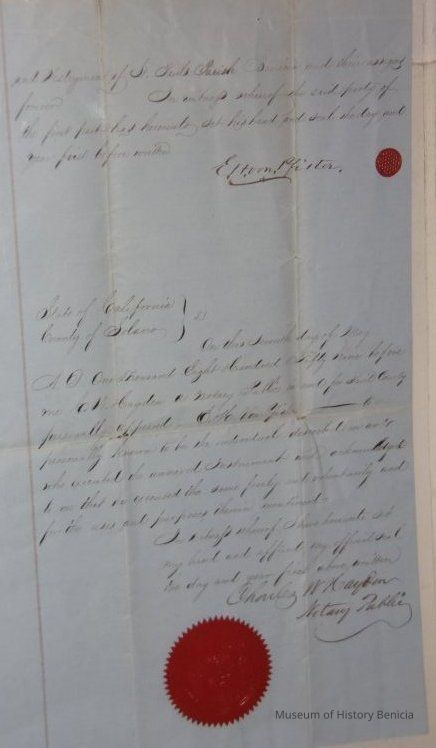 and Vestrymen of St. Pauls Parish Benicia and their assigns
forever
In witness whereof the said party of
the first part has hereunto set his hand and seal the day and
year first before written
E. H. von Pfister.
State of California
County of Solano } SS
On this day of May
A D One thousand Eight Hundred & Fifty nine before
me C W Hayden a Notary Public in and for said County
personally appeared E. H. von Pfister to
personally known to be the individual described in and
who executed the annexed Instrument and acknowledged
to me that he executed the same freely and voluntarily and
for the uses and purposes therein mentioned.
In witness whereof I have hereunto set
my hand and affixed my official seal
the day and year first above written
Charles W Hayden
Notary Public
Museum of History Benicia